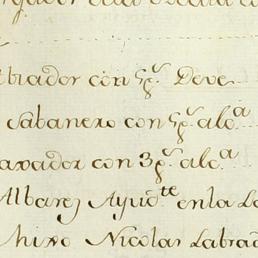 brador con 5p.s Deve
Sabanero con 5p.s alc.a
avador con 3p.s alc.a
Albarez Ayud.te en la La
hino Nicolas Labrad